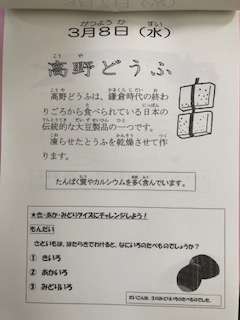 3月8日（水）
高野どうふ
高野どうふは、鎌倉時代の終わ
りごろから食べられている日本の
伝統的な大豆製品の一つです。
凍らせたとうふを乾燥させて作
ります。
たんぱく質やカルシウムを多く含んでいます。
★き・あか・みどりクイズにチャレンジしよう！
もんだい
さといもは、はたらきでわけると、なにいろのたべものでしょうか？
① きいろ
② あかいろ
③ みどりいろ